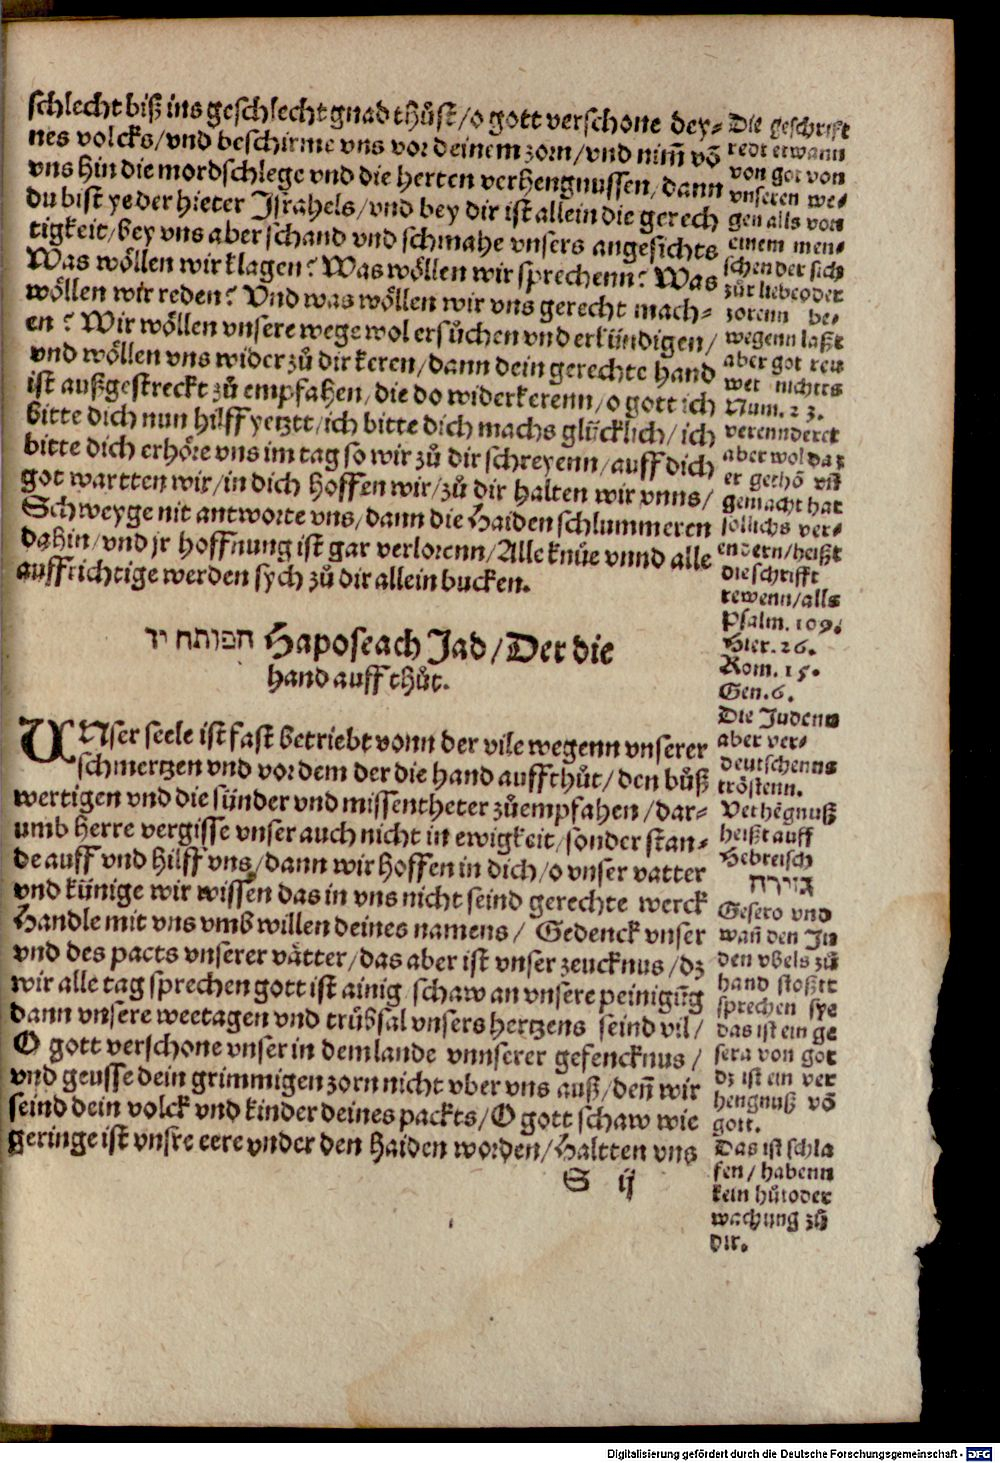 schlecht biß ins geschlecht gnad thůst/o gott verschone dey⸗
nes volcks/vnd beschirme vns vor deinem zorn/vnd nim̃ võ
vns hin die mordschlege vnd die herten verhengnussen/dann
du bist ye der hieter Jsrahels/vnd bey dir ist allein die gerech
tigkeit/bey vns aber schand vnd schmahe vnsers angesichts
Was wöllen wir klagen? Was wöllen wir sprechenn? Was
wöllen wir reden? Vnd was wöllen wir vns gerecht mach⸗
en? Wir wöllen vnsere wege wol ersůchen vnd erkündigen/
vnd wöllen vns wider zů dir keren/dann dein gerechte hand
ist außgestreckt zů empfahen/die do widerkerenn/o gott ich
bitte dich nun hilff yetztt/ich bitte dich machs glücklich/ich
bitte dich erhöre vns im tag so wir zů dir schreyenn/auff dich
got wartten wir/in dich hoffen wir/zů dir halten wir vnns/
Schweyge nit antworte vns/dann die Haiden schlummeren
dahin/vnd jr hoffnung ist gar verlorenn/Alle knüe vnnd alle
auffrichtige werden sych zů dir allein bucken.
הפותח יד Haposeach Jad/Der die
hand auff thůt.
VNser seele ist fast betriebt vonn der vile wegenn vnserer
schmertzen vnd vor dem der die hand auffthůt/den bůß
wertigen vnd die sünder vnd missentheter zůempfahen/dar⸗
umb herre vergisse vnser auch nicht in ewigkeit/sonder stan⸗
de auff vnd hilff vns/dann wir hoffen in dich/o vnser vatter
vnd künige wir wissen das in vns nicht seind gerechte werck
Handle mit vns vmb willen deines namens/ Gedenck vnser
vnd des pacts vnserer vätter/das aber ist vnser zeucknus/dz
wir alle tag sprechen gott ist ainig/schaw an vnsere peinigũg
dann vnsere weetagen vnd trůbsal vnsers hertzens seind vil/
O gott verschone vnser in dem lande vnnserer gefencknus/
vnd geusse dein grimmigen zorn nicht vber vns auß/deñ wir
seind dein volck vnd kinder deines packts/O gott schaw wie
geringe ist vnsre eere vnder den Haiden worden/Haltten vns
S ij
Die geschrift
redt etwann
von got von
vnseren we⸗
gen alls von
einem men⸗
schen der sich
zůr liebe oder
zorenn be⸗
wegenn laßt
aber got reu
wet nichtts
Num. 23.
verennderet
aber wol daz
er gethõ vñ
gemacht hat
sollichs ver⸗
endern/heißt
die schrifft
rewenn/alls
Psalm. 109.
Hier. 26.
Rom. 15.
Gen. 6.
Die Judenn
aber ver⸗
deutschenns
tröstenn.
Verhẽgnuß
heißt auff
Hebreisch
גזירה
Gesero vnd
wañ den Ju
den vbels zů
hand stoßtt
sprechen sye
das ist ein ge
sera von got
dz ist ein ver
hengnuß võ
gott.
Das ist schla
fen/habenn
kein hůt oder
wachung zů
dir.
Digitalisierung gefördert durch die Deutsche Forschungsgemeinschaft - DFG